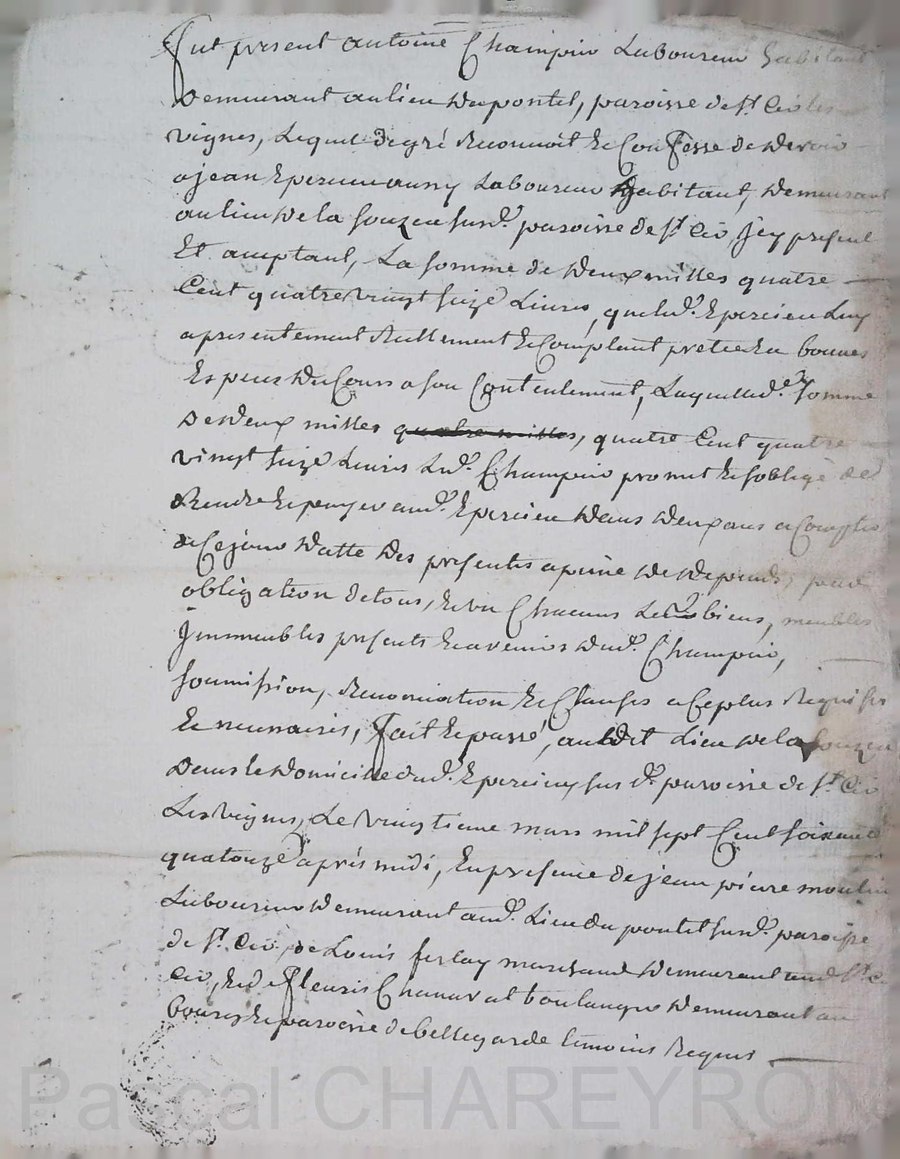 Fut present antoine Champin Laboureur habitant
Demeurant au lieu du pontel, paroisse de St. Cir les
vignes, Lequel de gré Reconnoit Et Confesse de devoir
a jean Epercieu aussy Laboureur habitant, demeurant
au lieu de la fouzea susd. paroisse de St. Cir, Jcy present
Et acceptant, La somme de deux milles quatre
Cent quatre vingt seize Livres, que led. Epercieu Luy
a presentement Réellement Et Comptant preté En bonnes
Especes du Cours a son Contentement, Laquelle de. somme
De deux milles quatre milles, quatre Cent quatre
vingt seize Livres Led. Champin promet Et soblige de
Rendre Et payer aud. Epercieu dans deux ans a Compter
de Ce jour datte des presentes a peine de depends, par
obligation de tous, Et un Chacuns Les biens, meubles
Jmmeubles presents Et avenirs dud. Champin,
soumission, Renonciation Et Clauses a Ce plus Requises
Et necessaires, fait Et passé, audit Lieu de la fouzea
Dans le domicile dud. Epercieu susd. paroisse de St. Cir
Les vignes, Le vingtieme mars mil sept Cent soixante
quatorze après midi, En presence de jean pierre moulin
Laboureur demeurant aud. Lieu du pontel susd. paroisse
de St. Cir, de Louis ferlay marchand demeurant aud St.
Cir, Et de fleuris Chanaval boulanger demeurant au
bourg Et paroisse de bellegarde temoins Requis
Pascal CHAREYRON